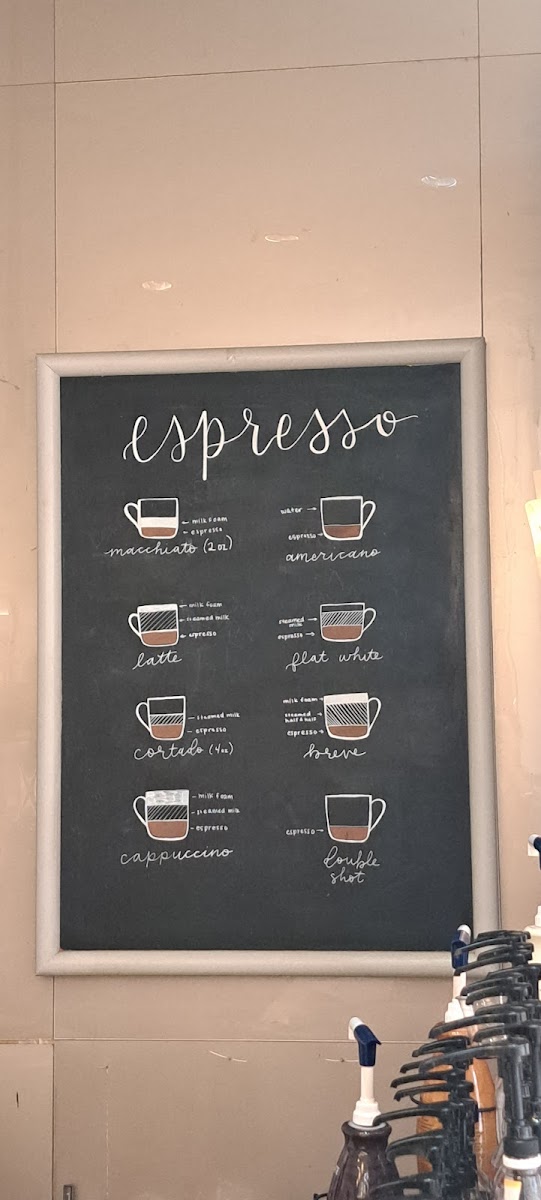 espresso
milk foam
espresso
macchiato (2 oz)
water
espresso
americano
milk foam
steamed milk
espresso
latte
steamed
milk
espresso
flat white
steamed milk
espresso
cortado (4oz)
milk foam
steamed
half & half
espresso
breve
milk foam
steamed milk
espresso
cappuccino
espresso
double
shot